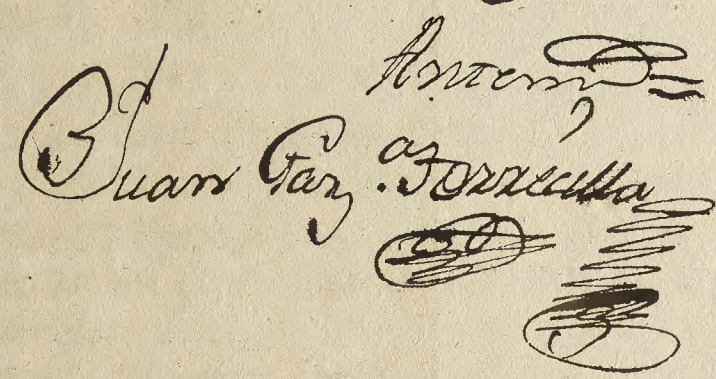 Antem̃
Juan Garz.ª Torrecilla